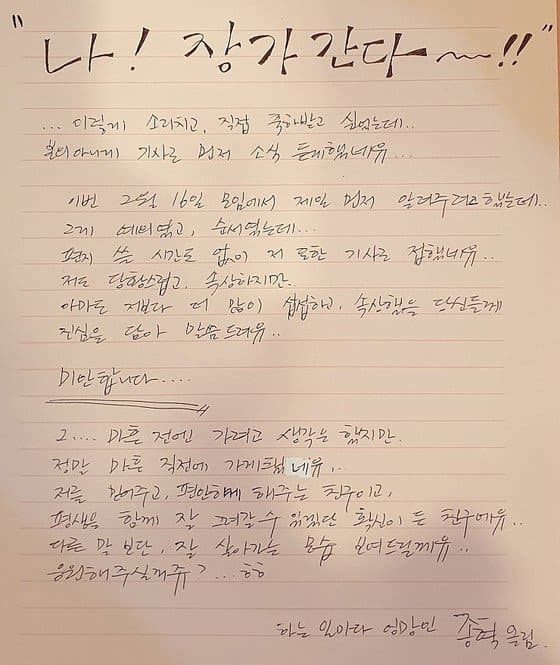 "나! 장가간다~!!"
... 이렇게 소리치고, 직접 축하받고 싶었는데..
본의아니게 기사로 먼저 소식 듣게했네유...
이번 2월 16일 모임에서 제일 먼저 알려주려고했는데..
그게 예의였고, 순서였는데...
편지 쓸 시간도 없이 저 또한 기사로 접했네유..
저도 당황스럽고, 속상하지만..
아마도 저보다 더 많이 섭섭하고, 속상했을 당신들께
진심을 담아 말씀드려유..
미안합니다....
그.... 마흔 전엔 가려고 생각은 했지만.
정말 마흔 직전에 가게됐네유..
저를 믿어주고, 편안하게 해주는 친구이고,
평생을 함께 잘 그려갈수 있겠단 확신이 든 친구에유..
다른 말 보단, 잘 살아가는 모습 보여드릴께유..
응원해주실꺼쥬?...ㅎㅎ
하는 일마다 엉망인 종혁 올림.